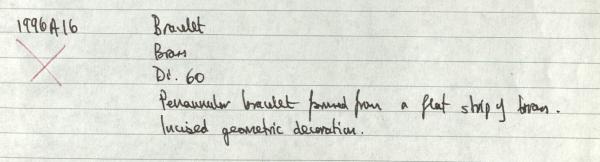 1996A16 Bracelet
Brass
Di. 60
Penannular bracelet formed from a flat strip of brass.
Incised geometric decoration.